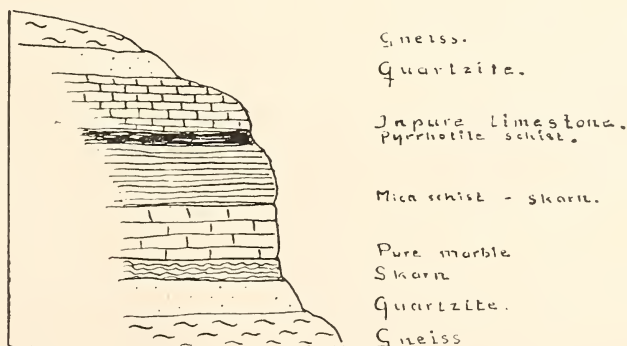 Gneiss.
Quartzite.
Inpure limestone.
Pyrrhotite schist.
Mica schist - skarn.
Pure marble
Skarn
Quartzite.
Gneiss